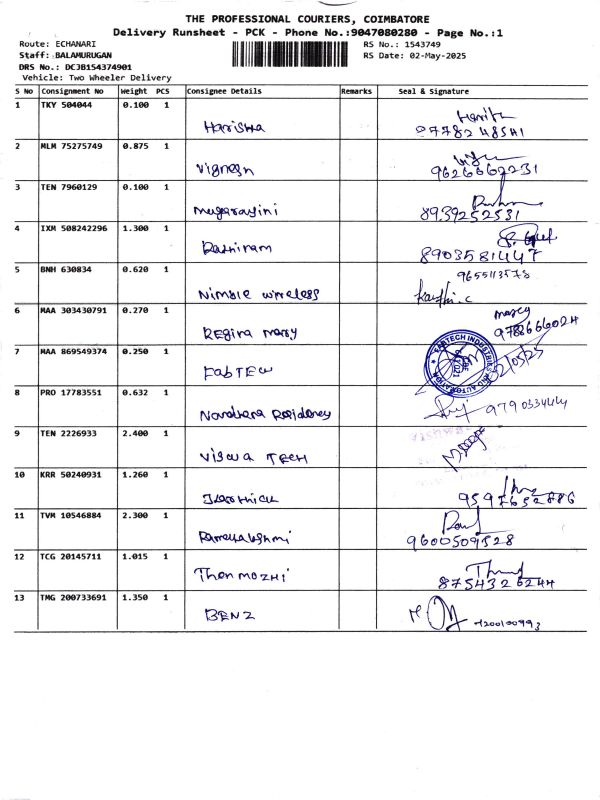 THE PROFESSIONAL COURIERS, COIMBATORE
Delivery Runsheet - PCK - Phone No.:9047080280 - Page No.:1
Route: ECHANARI
RS No.: 1543749
Staff: BALAMURUGAN
RS Date: 02-May-2025
DRS No.: DCJB154374901
Vehicle: Two Wheeler Delivery
S No Consignment No Weight PCS Consignee Details Remarks Seal & Signature
1 TKY 504044 0.100 1
Harisha
2 MLM 75275749 0.875 1
Vignesh 9626662231
3 TEN 7960129 0.100 1
8939252531
4 IXM 508242296 1.300 1
8903581447
5 BNH 630834 0.620 1
9655113578
Nimble wireless
6 MAA 303430791 0.270 1
Mary
Regina Mary
7 MAA 869549374 0.250 1
02/05/25
8 PRO 17783551 0.632 1
Residency 9790534444
9 TEN 2226933 2.400 1
TECH
10 KRR 50240931 1.260 1
9597652886
11 TVM 10546884 2.300 1
9600509528
12 TCG 20145711 1.015 1
Thenmozhi
13 TMG 200733691 1.350 1
BENZ